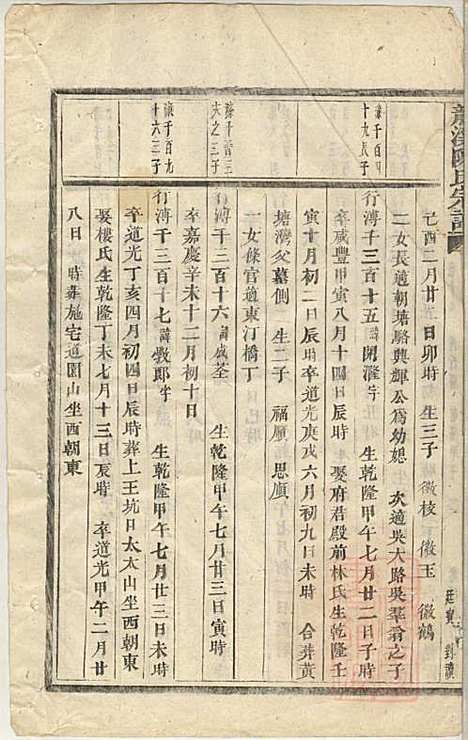 己酉二月廿三日卯時 生三子 徽棱 徽玉 徽鶴
二女長適朝塘駱興輝公為幼媳 次適吳大路吳羣翁之子
濂千百四十九長子
行溥千三百十五諱開漋字 生乾隆甲午七月廿二日子時
卒咸豐甲寅八月十四日辰時 娶府君殿前林氏生乾隆壬
寅十月初二日辰時卒道光庚戌六月初九日未時 合葬黄
塘灣父墓側 生二子 福 思
一女條官適東汀橋丁
行溥千三百十六諱成荃 生乾隆甲午七月廿三日寅時
卒嘉慶辛未十二月初十日
濂千百九十六三子
行溥千三百十七諱 郎字 生乾隆甲午七月廿三日未時
卒道光丁亥四月初四日辰時葬上王坑日太太山坐西朝東
娶樓氏生乾隆丁未七月十三日亥時 卒道光甲午二月廿
八日 時葬施宅道園山坐西朝東